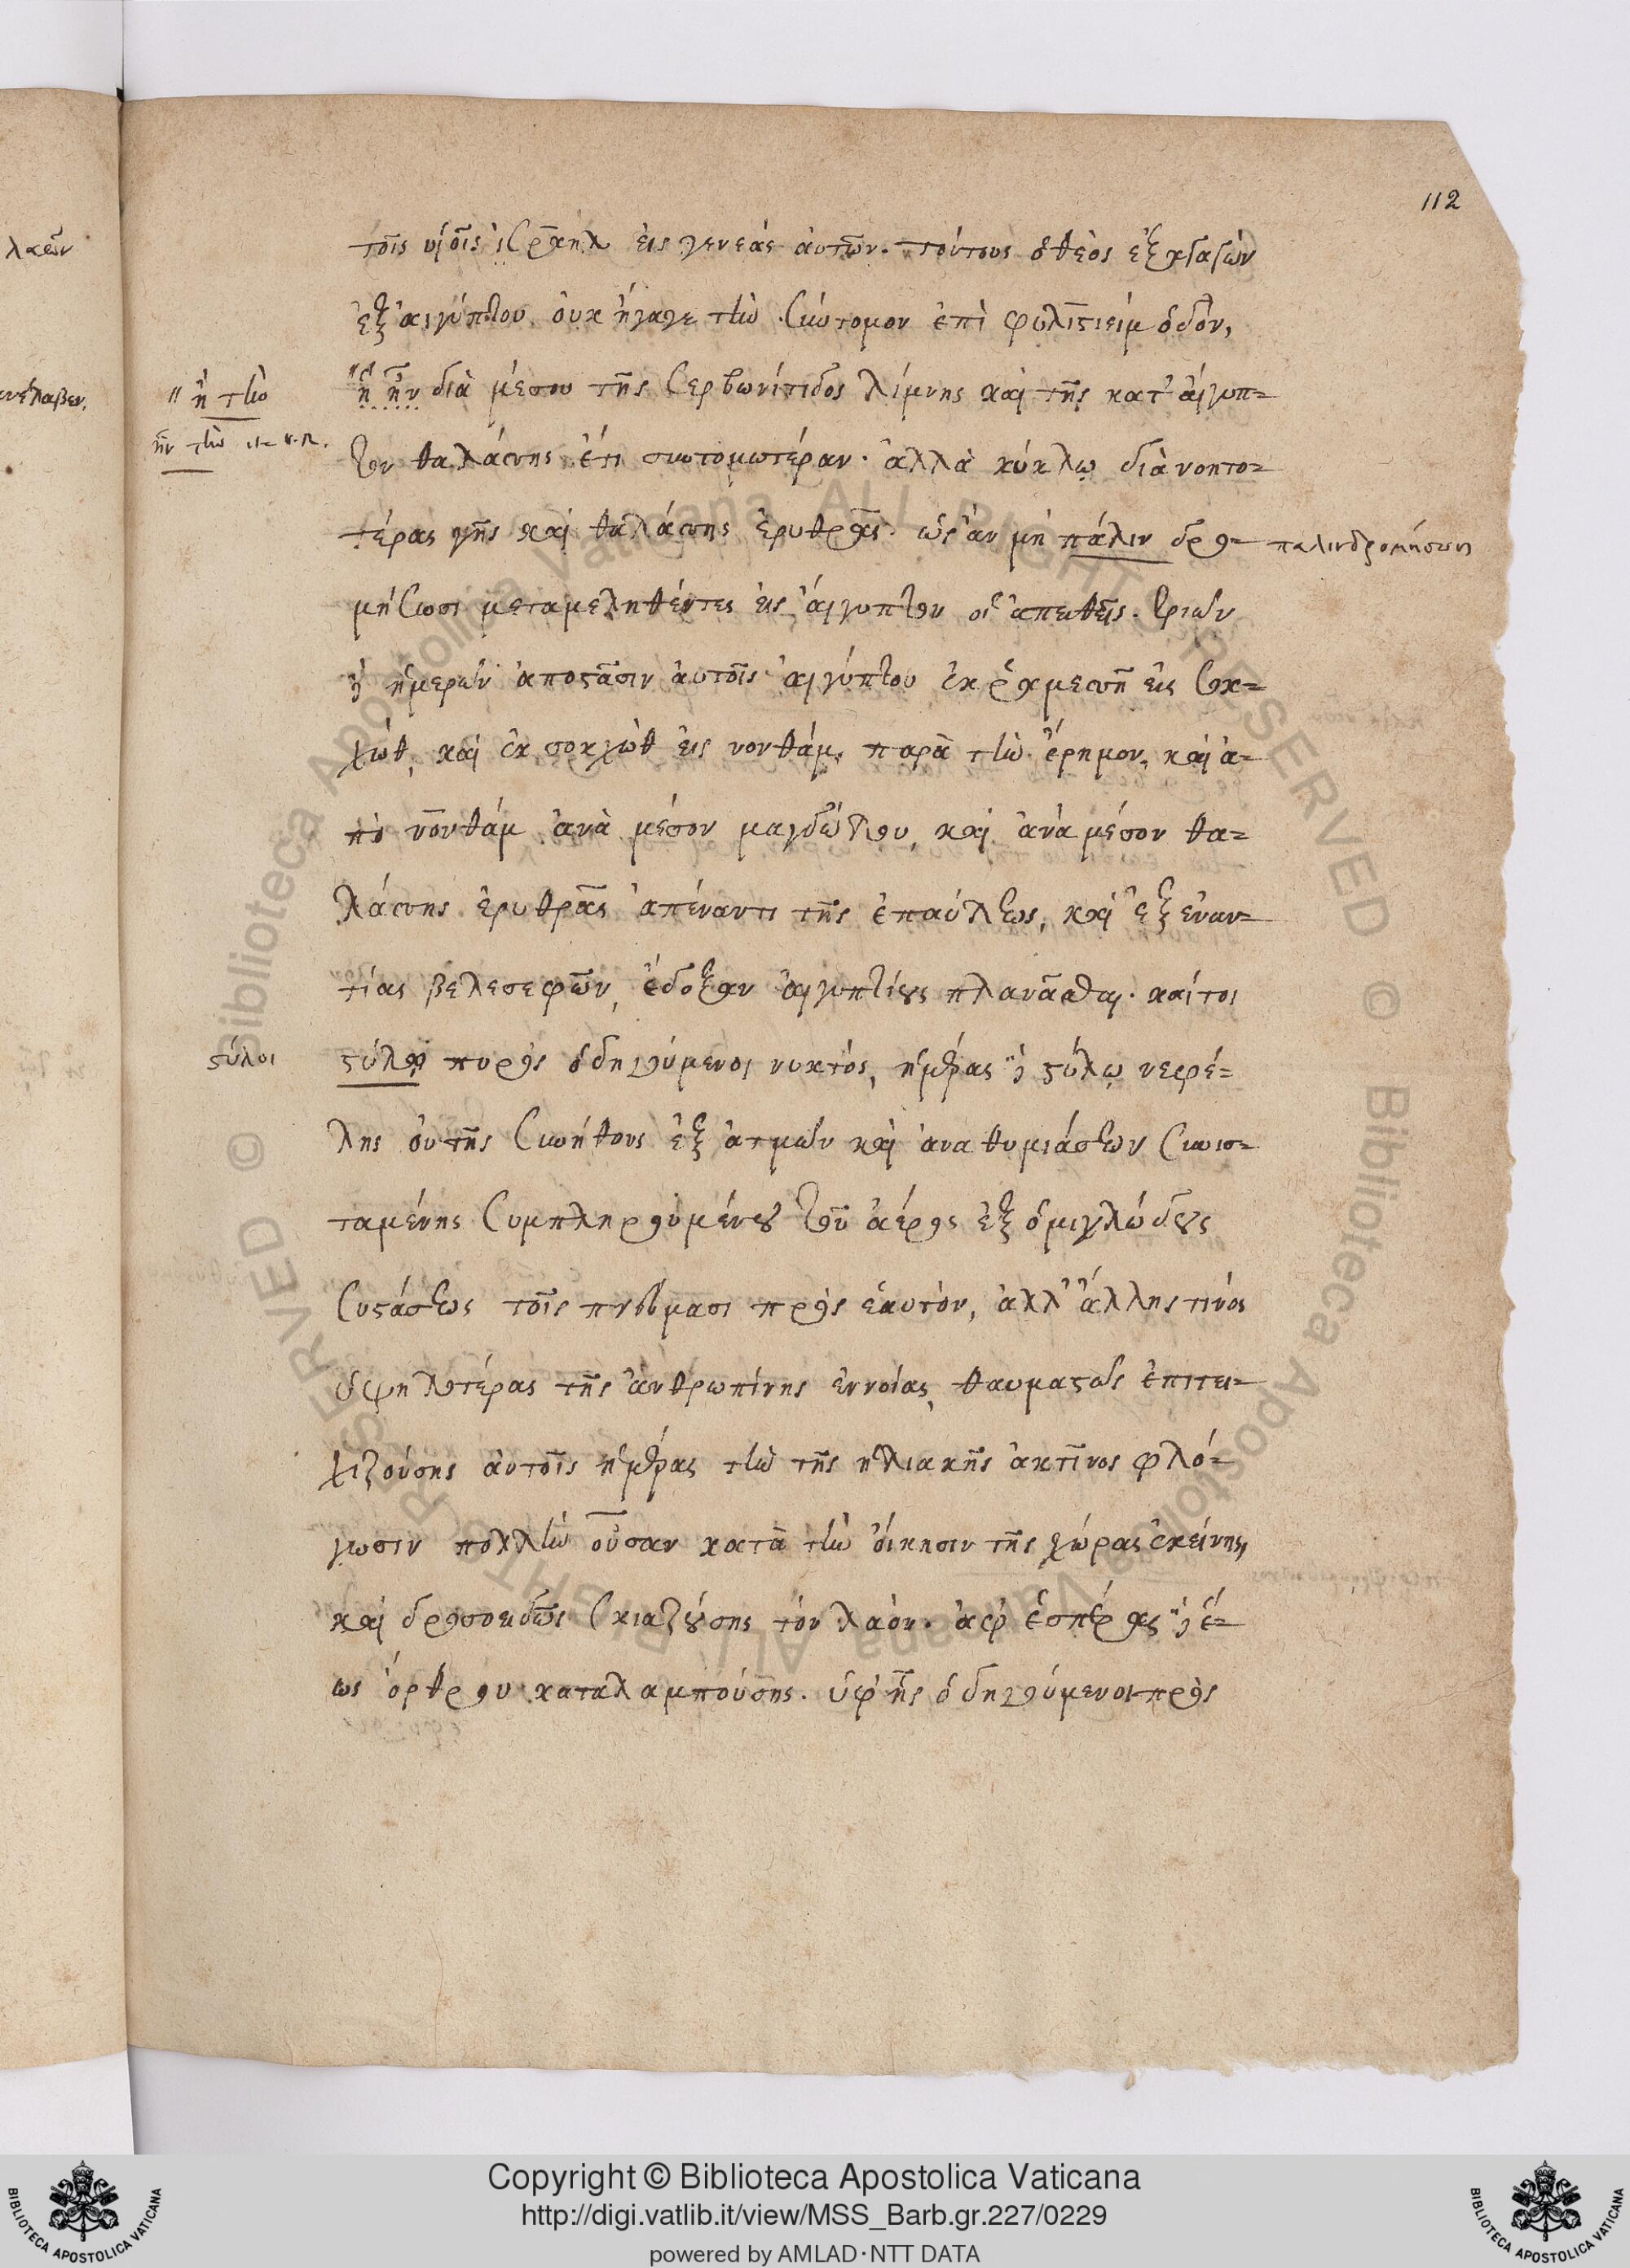 112
λαῶν
τοῖς υἱοῖς ἰσραὴλ εἰς γενεὰς αὐτῶν. τούτους ὁ θεὸς ἐξαγαγὼν
ἐξ αἰγύπτου, οὐκ ἤγαγε τὴν σύντομον ἐπὶ φυλιστιεὶμ ὁδὸν,
ἢ ἦν διὰ μέσου τῆς Σερβωνίτιδος λίμνης καὶ τῆς κατ' αἴγυπ-
ἢ τὴν
ἣν τὴν
τον θαλάσσης ἔτι συντομωτέραν. ἀλλὰ κύκλῳ διὰ νοητο-
τέρας γῆς καὶ θαλάσσης ἐρυθρᾶς. ὡς ἂν μὴ πάλιν δρο-
παλινδρομήσωσι
μήσωσι μεταμεληθέντες εἰς αἴγυπτον οἱ ἀπειθεῖς. τριῶν
δὲ ἡμερῶν ἀποστᾶσιν αὐτοῖς αἰγύπτου ἐκ ῥαμεσσῆ εἰς σοκ-
χὼθ, καὶ ἐκ σοκχὼθ εἰς νονθάμ, παρὰ τὴν ἔρημον, καὶ ἀ-
πὸ νονθάμ ἀνὰ μέσον μαγδώλου, καὶ ἀνὰ μέσον θα-
λάσσης ἐρυθρᾶς ἀπέναντι τῆς ἐπαύλεως, καὶ ἐξ ἐναν-
τίας βελεσεφῶν, ἔδοξαν αἰγυπτίοις πλανᾶσθαι. καίτοι
στύλῳ πυρὸς ὁδηγούμενοι νυκτὸς, ἡμέρας δὲ στύλῳ νεφέ-
στύλοι
λης οὐ τῆς συνήθους ἐξ ἀτμῶν καὶ ἀναθυμιάσεων συνισ-
ταμένης συμπληρουμένου τοῦ ἀέρος ἐξ ὁμιχλώδους
συστάσεως τοῖς πνεύμασι πρὸς ἑαυτὸν, ἀλλ' ἄλλης τινὸς
ὑψηλοτέρας τῆς ἀνθρωπίνης ἐννοίας, θαυμαστῶς ἐπιτει-
χιζούσης αὐτοῖς ἡμέρας τὴν τῆς ἡλιακῆς ἀκτῖνος φλό-
γωσιν πολλὴν οὖσαν κατὰ τὴν οἴκησιν τῆς χώρας ἐκείνης,
καὶ δροσοειδῶς σκιαζούσης τὸν λαόν. ἀφ' ἑσπέρας δὲ ἕ-
ως ὄρθρου καταλαμπούσης. ὑφ' ἧς ὁδηγούμενοι πρὸς
Copyright © Biblioteca Apostolica Vaticana
http://digi.vatlib.it/view/MSS_Barb.gr.227/0229
powered by AMLAD·NTT DATA